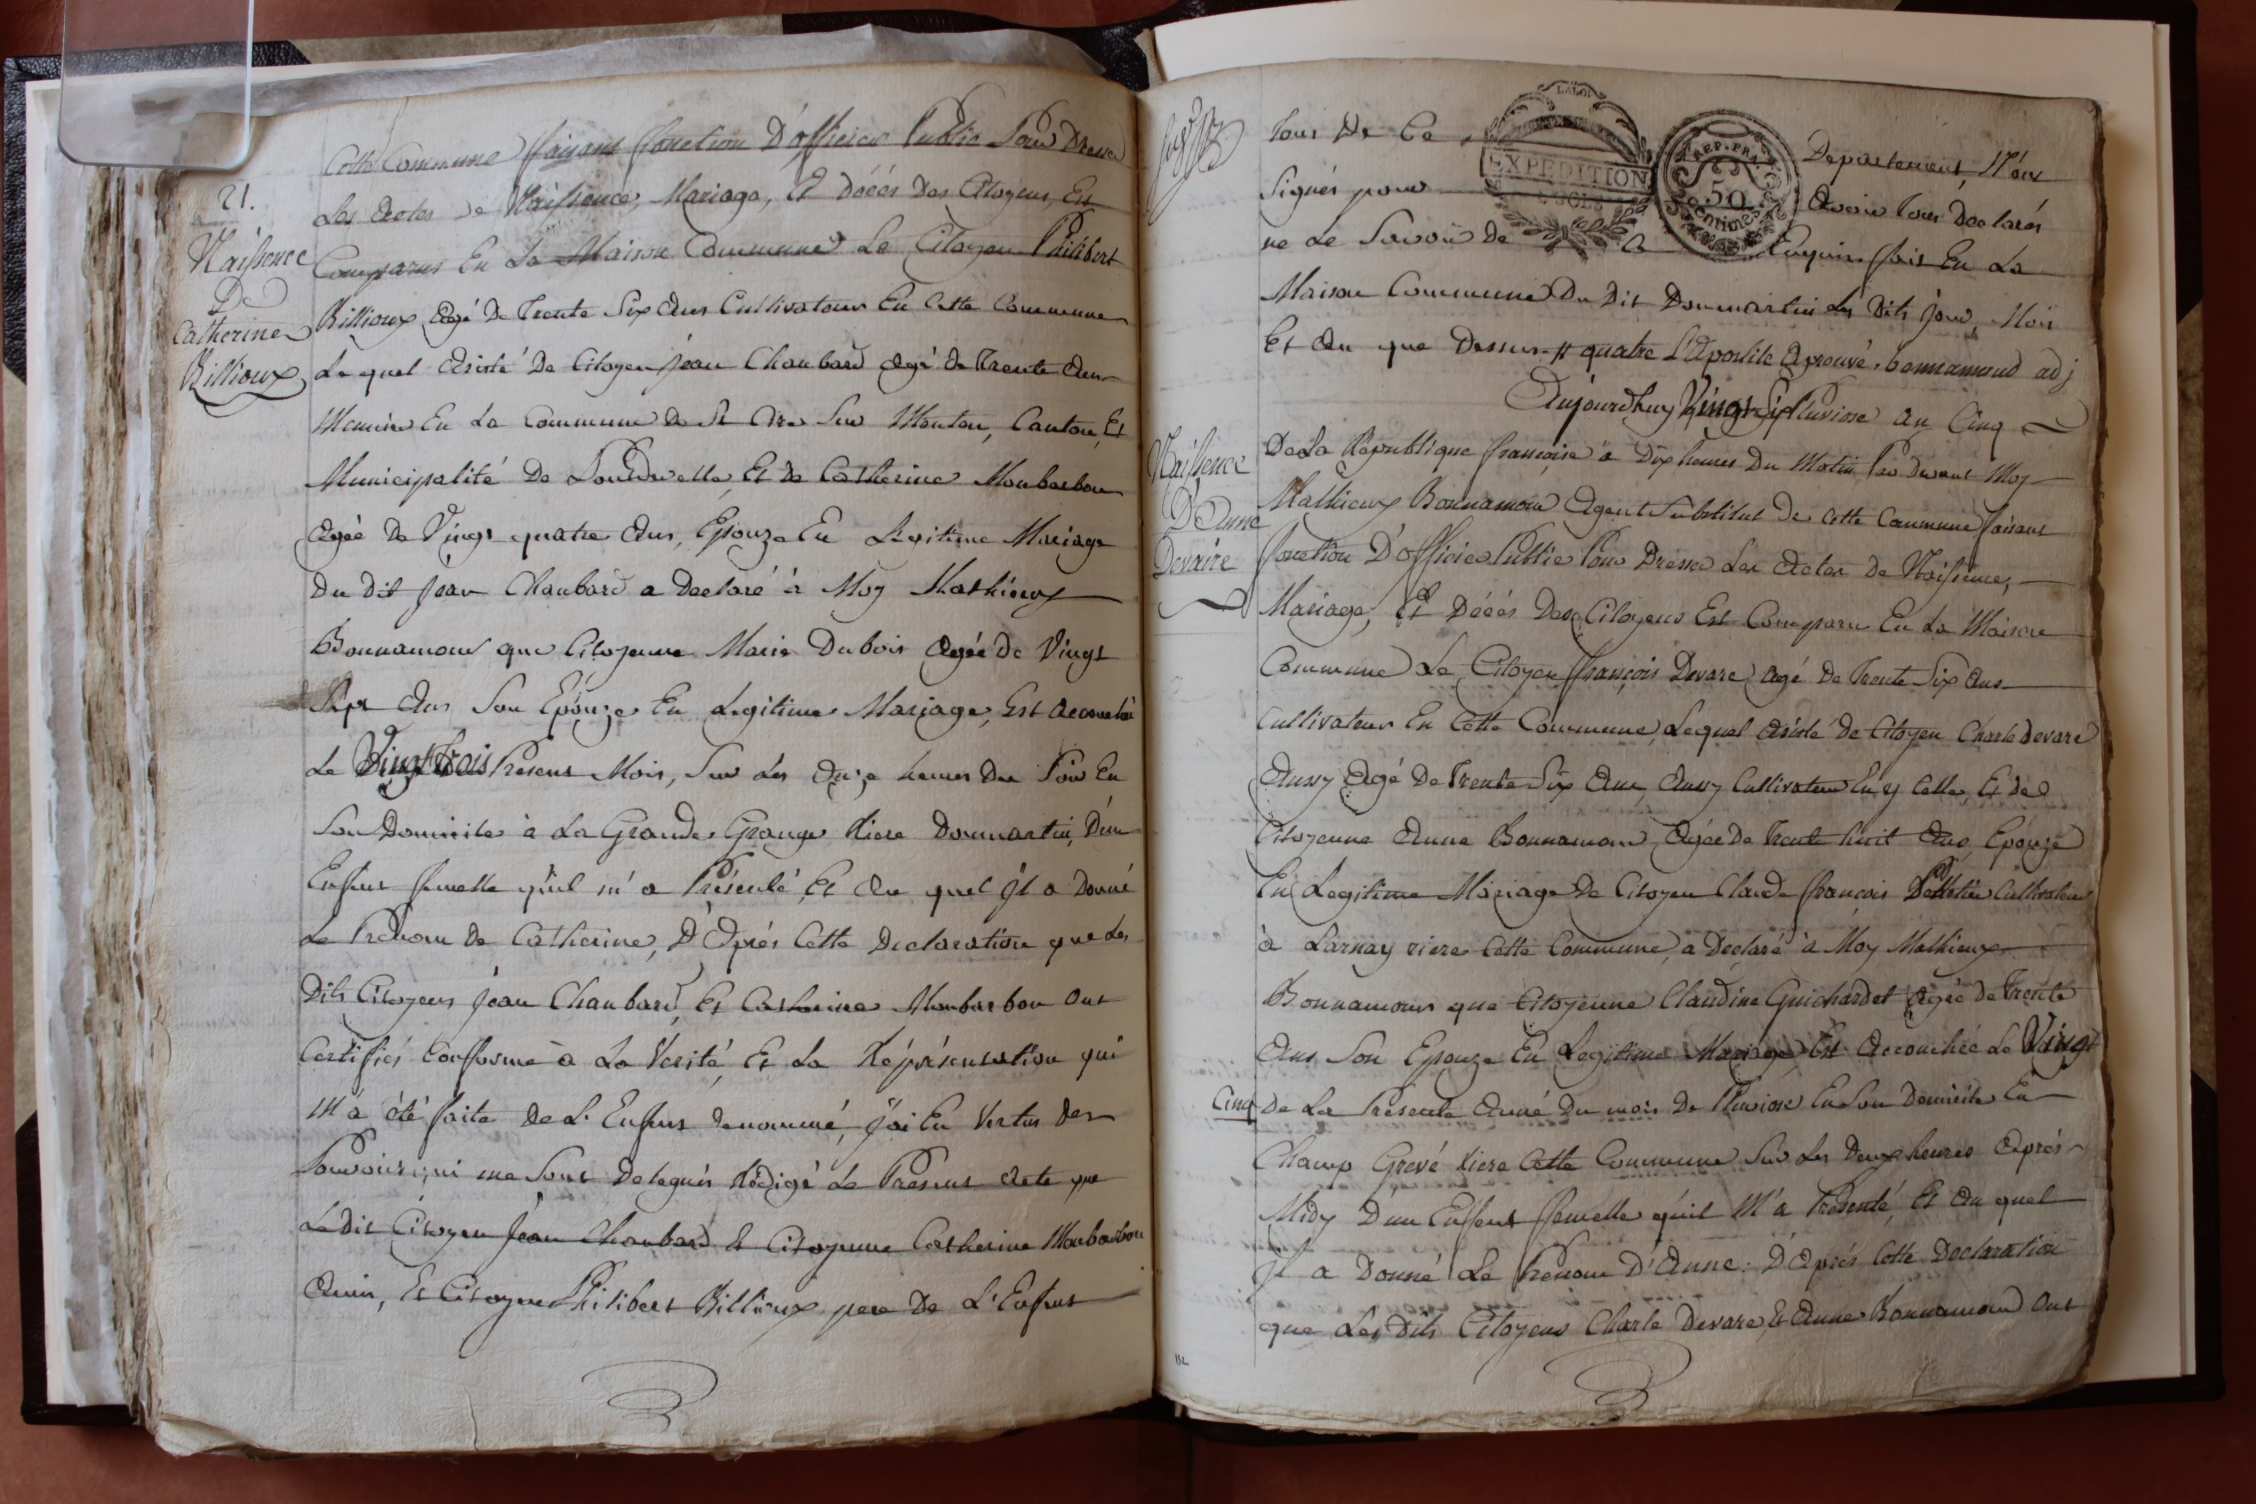 Cette Commune faisant fonction D'officier Public Pour Dresser
Les Actes de Naissence, Mariage, Et Décés Des Citoyens, Est
Comparus En La Maison Commune Le Citoyen Philibert
Billioux Agé De Trente Six Ans Cultivateur En Cette Commune
Le quel Asisté De Citoyen Jean Chanbard Agé de Trente Ans
En La Commune de St Cire Sur Menton, Canton, Et
Municipalité De Et de Catherine Monbarbon
Agée de Vingt quatre Ans, Epouze En Legitime Mariage
Du dit Jean Chanbard a Declaré à Moy Mathieux
Bonnamour que Citoyenne Marie Dubois Agée De Vingt
Sept Ans Son Epouze En Legitime Mariage, Est Acouchée
Le Vingt Trois Présent Mois, Sur Les Onze heures Du Soir En
Son Domicile à La Grande Grange Riere Dommartin, D'un
Enfent femelle qu'il m'a Présenté, Et Au quel Jl a Donné
Le Prénom de Catherine, D'Aprés Cette Declaration que Les
Dits Citoyens Jean Chanbard, Et Catherine Monbarbon Ont
Certifiés Conforme à La Verité, Et La Réprésentation qui
M'a été faite De L'Enfent denommé, J'ai En Vertus Des
Pouvoirs qui me Sont Delegués Rédigé Le Présent Acte que
Le dit Citoyen Jean Chanbard Et Citoyenne Catherine Monbarbon
Et Citoyen Philibert Billioux pere De L'Enfent
21.
Naissence
De
Catherine
Billioux
Tous De Ce Departement, N'ont
Signés pour Avoir Tous Declarés
ne Le Savoir De Enquis fait En La
Maison Commune Du Dit Dommartin Les Dits Jour, Mois
Et An que Dessus. # quatre L'Apostile Aprouvé. bonnamour adj
LA LOI
EXPEDITION
REP. FRA.
50
centimes
Aujourdhuy Vingt Six Pluviose An Cinq
De La République françoise à Dix heures Du Matin Par Devant Moy
Mathieux Bonnamour Agent Substitut De Cette Commune faisant
fonction D'officier Public Pour Dresser Les Actes de Naissence,
Mariage, Et Décés Des Citoyens Est Comparu En La Maison
Commune Le Citoyen françois Devare Agé De Trente Six Ans
Cultivateur En Cette Commune, Lequel Asisté De Citoyen Charle Devare
Aussy Agé De Trente Six Ans, Aussy Cultivateur En y Celle, Et de
Citoyenne Anne Bonnamour Agée De Trente huit Ans, Epouze
En Legitime Mariage De Citoyen Claude françois Cultivateur
à Larnay riere Cette Commune, a Declaré à Moy Mathieux
Bonnamour que Citoyenne Claudine Guichardet Agée de Trente
Ans Son Epouze En Legitime Mariage Est Accouchée Le Vingt
Cinq De La Présente Anné Du mois De Pluviose En Son Domicile En
Champ Grevé Riere Cette Commune Sur Les Deux heures Aprés
Midy D'un Enfent femelle qu'il M'a Présenté, Et Au quel
Jl a Donné Le Prénom D'Anne: D'Aprés Cette Declaration
que Les Dits Citoyens Charle Devare, Et Anne Bonnamour Ont
Naissence
D'Anne
Devaire